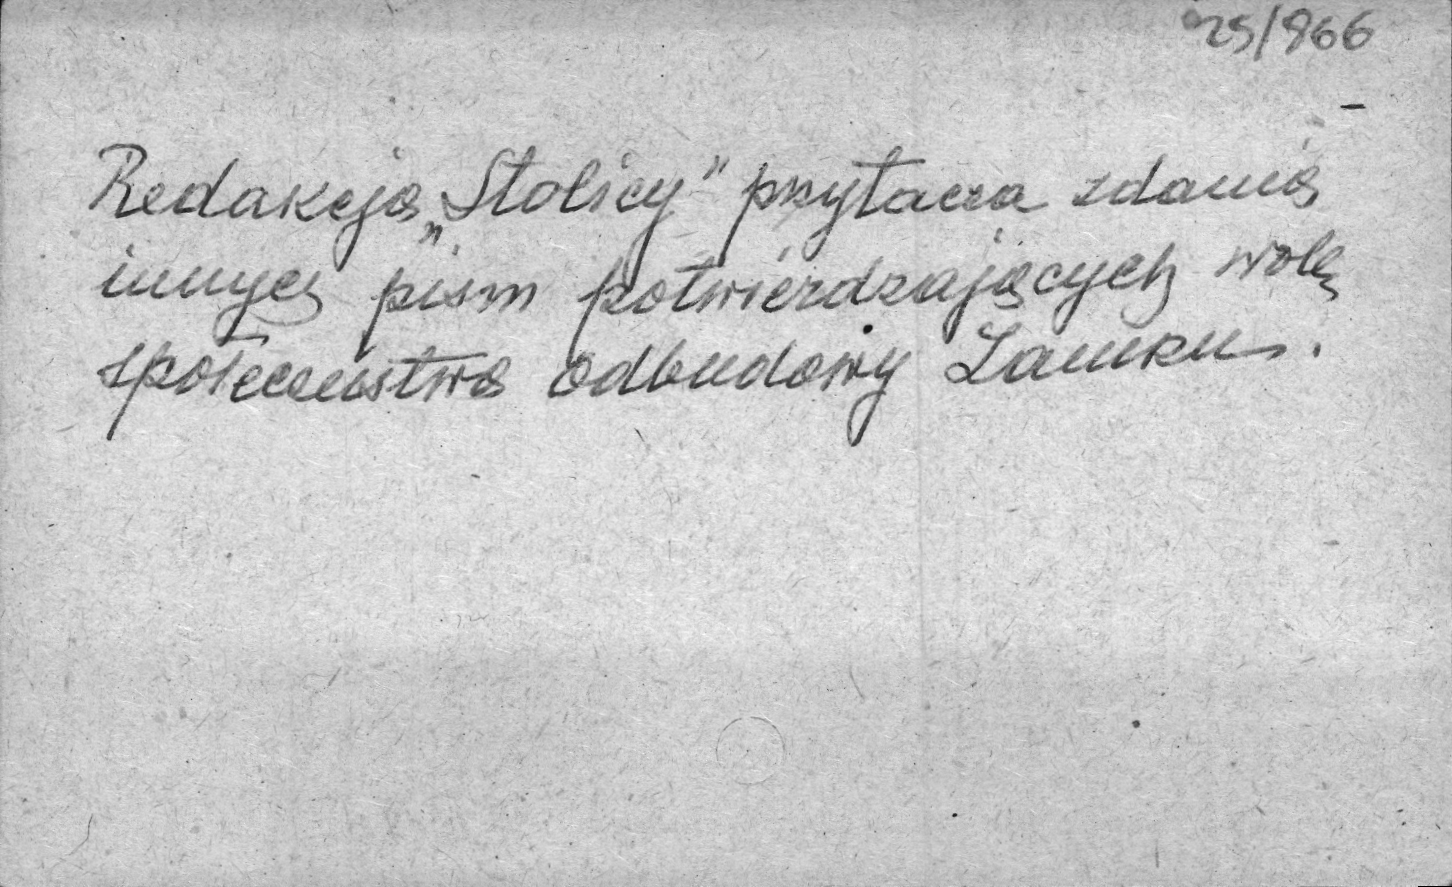 25/866
Redakcja „Stolicy" przytacza zdania
innych pism potwierdzających wolę
społeczeństwa odbudowy Zamku.